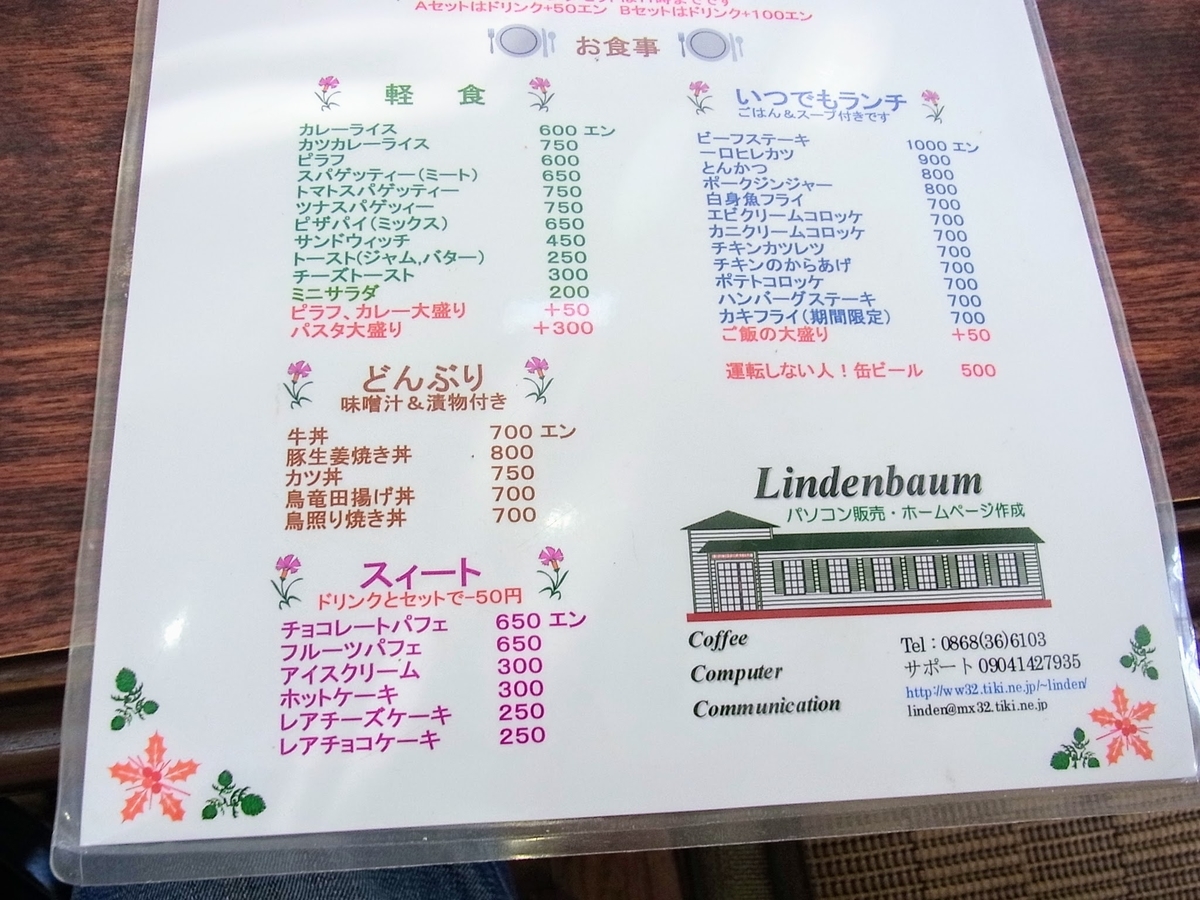 Aセットはドリンク+50エン Bセットはドリンク+100エン
お食事
軽 食
カレーライス 600 エン
カツカレーライス 750
ピラフ 600
スパゲッティー(ミート) 650
トマトスパゲッティー 750
ツナスパゲッィー 750
ピザパイ(ミックス) 650
サンドウィッチ 450
トースト(ジャム,バター) 250
チーズトースト 300
ミニサラダ 200
ピラフ、カレー大盛り +50
パスタ大盛り +300
どんぶり
味噌汁&漬物付き
牛丼 700 エン
豚生姜焼き丼 800
カツ丼 750
鳥竜田揚げ丼 700
鳥照り焼き丼 700
スィート
ドリンクとセットで-50円
チョコレートパフェ 650 エン
フルーツパフェ 650
アイスクリーム 300
ホットケーキ 300
レアチーズケーキ 250
レアチョコケーキ 250
いつでもランチ
ごはん&スープ付きです
ビーフステーキ 1000 エン
一口ヒレカツ 900
とんかつ 800
ポークジンジャー 800
白身魚フライ 700
エビクリームコロッケ 700
カニクリームコロッケ 700
チキンカツレツ 700
チキンのからあげ 700
ポテトコロッケ 700
ハンバーグステーキ 700
カキフライ(期間限定) 700
ご飯の大盛り +50
運転しない人!缶ビール 500
Lindenbaum
パソコン販売・ホームページ作成
Coffee
Computer
Communication
Tel:0868(36)6103
サポート 09041427935
http://ww32.tiki.ne.jp/~linden/
linden@mx32.tiki.ne.jp